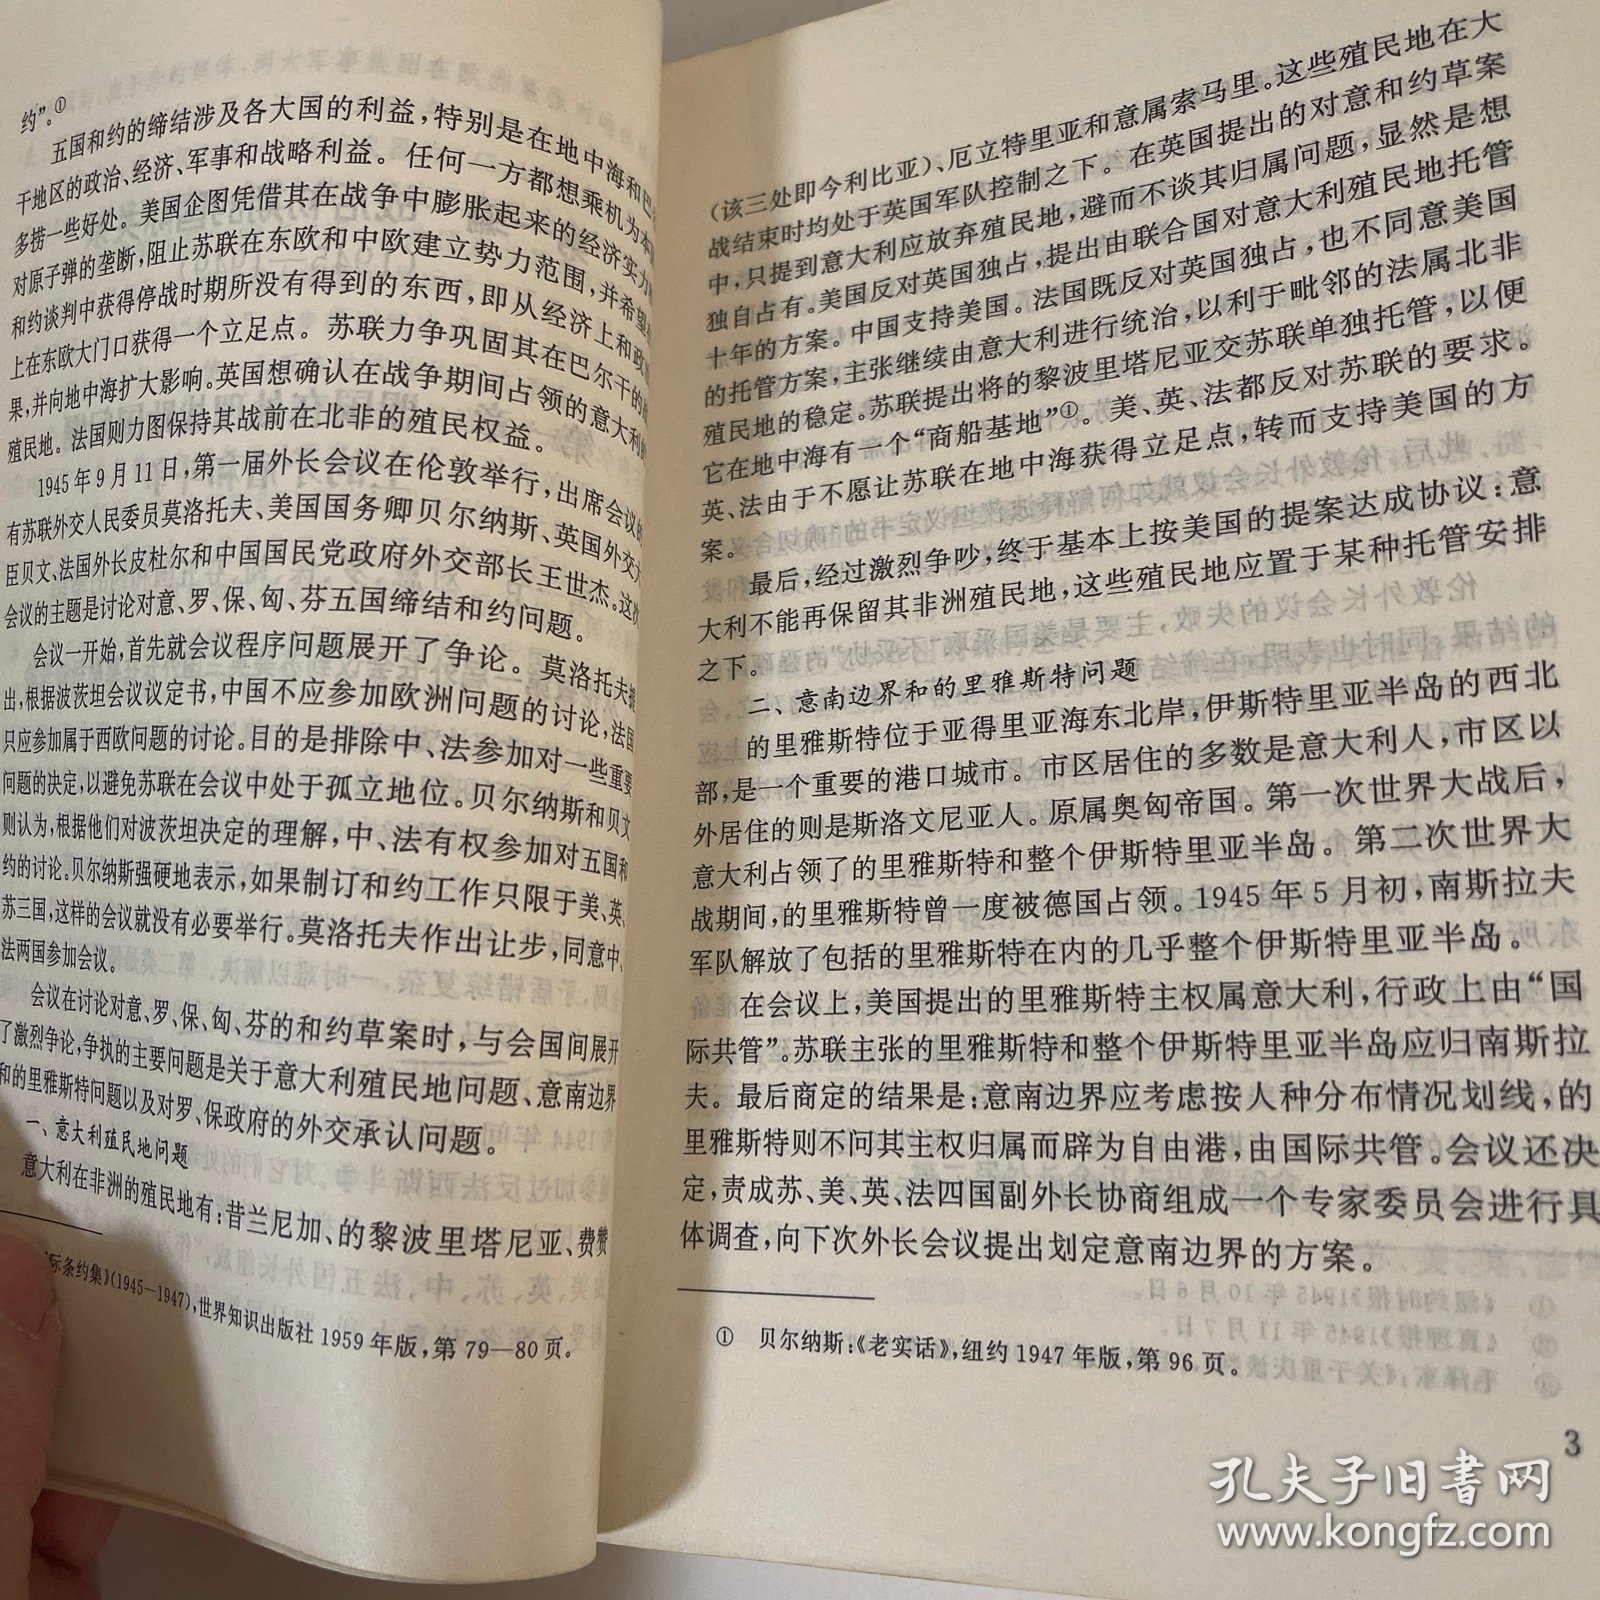 约”。①
五国和约的缔结涉及各大国的利益，特别是在地中海和巴
干地区的政治、经济、军事和战略利益。任何一方都想乘机为本
多捞一些好处。美国企图凭借其在战争中膨胀起来的经济实力
对原子弹的垄断，阻止苏联在东欧和中欧建立势力范围，并希望
和约谈判中获得停战时期所没有得到的东西，即从经济上和政
上在东欧大门口获得一个立足点。苏联力争巩固其在巴尔干的
果，并向地中海扩大影响。英国想确认在战争期间占领的意大利
殖民地。法国则力图保持其战前在北非的殖民权益。
1945年9月11日，第一届外长会议在伦敦举行，出席会议
有苏联外交人民委员莫洛托夫、美国国务卿贝尔纳斯、英国外交大
臣贝文、法国外长皮杜尔和中国国民党政府外交部长王世杰。这
会议的主题是讨论对意、罗、保、匈、芬五国缔结和约问题。
会议一开始，首先就会议程序问题展开了争论。莫洛托夫
出，根据波茨坦会议议定书，中国不应参加欧洲问题的讨论，法国
只应参加属于西欧问题的讨论。目的是排除中、法参加对一些重要
问题的决定，以避免苏联在会议中处于孤立地位。贝尔纳斯和贝文
则认为，根据他们对波茨坦决定的理解，中、法有权参加对五国和
约的讨论。贝尔纳斯强硬地表示，如果制订和约工作只限于美、英、
苏三国，这样的会议就没有必要举行。莫洛托夫作出让步，同意中、
法两国参加会议。
会议在讨论对意、罗、保、匈、芬的和约草案时，与会国间展开
了激烈争论，争执的主要问题是关于意大利殖民地问题、意南边界
和的里雅斯特问题以及对罗、保政府的外交承认问题。
一、意大利殖民地问题
意大利在非洲的殖民地有：昔兰尼加、的黎波里塔尼亚、费赞
际条约集》（1945—1947），世界知识出版社1959年版，第79—80页。
（该三处即今利比亚）、厄立特里亚和意属索马里。这些殖民地在大
战结束时均处于英国军队控制之下。在英国提出的对意和约草案
中，只提到意大利应放弃殖民地，避而不谈其归属问题，显然是想
独自占有。美国反对英国独占，提出由联合国对意大利殖民地托管
十年的方案。中国支持美国。法国既反对英国独占，也不同意美国
的托管方案，主张继续由意大利进行统治，以利于毗邻的法属北非
殖民地的稳定。苏联提出将的黎波里塔尼亚交苏联单独托管，以便
它在地中海有一个“商船基地”①。美、英、法都反对苏联的要求。
英、法由于不愿让苏联在地中海获得立足点，转而支持美国的方
案。
最后，经过激烈争吵，终于基本上按美国的提案达成协议：意
大利不能再保留其非洲殖民地，这些殖民地应置于某种托管安排
之下。
二、意南边界和的里雅斯特问题
的里雅斯特位于亚得里亚海东北岸，伊斯特里亚半岛的西北
部，是一个重要的港口城市。市区居住的多数是意大利人，市区以
外居住的则是斯洛文尼亚人。原属奥匈帝国。第一次世界大战后，
意大利占领了的里雅斯特和整个伊斯特里亚半岛。第二次世界大
战期间，的里雅斯特曾一度被德国占领。1945年5月初，南斯拉夫
军队解放了包括的里雅斯特在内的几乎整个伊斯特里亚半岛。
在会议上，美国提出的里雅斯特主权属意大利，行政上由“国
际共管”。苏联主张的里雅斯特和整个伊斯特里亚半岛应归南斯拉
夫。最后商定的结果是：意南边界应考虑按人种分布情况划线，的
里雅斯特则不问其主权归属而辟为自由港，由国际共管。会议还决
定，责成苏、美、英、法四国副外长协商组成一个专家委员会进行具
体调查，向下次外长会议提出划定意南边界的方案。
① 贝尔纳斯：《老实话》，纽约1947年版，第96页。
3
孔夫子旧书网
www.kongfz.com